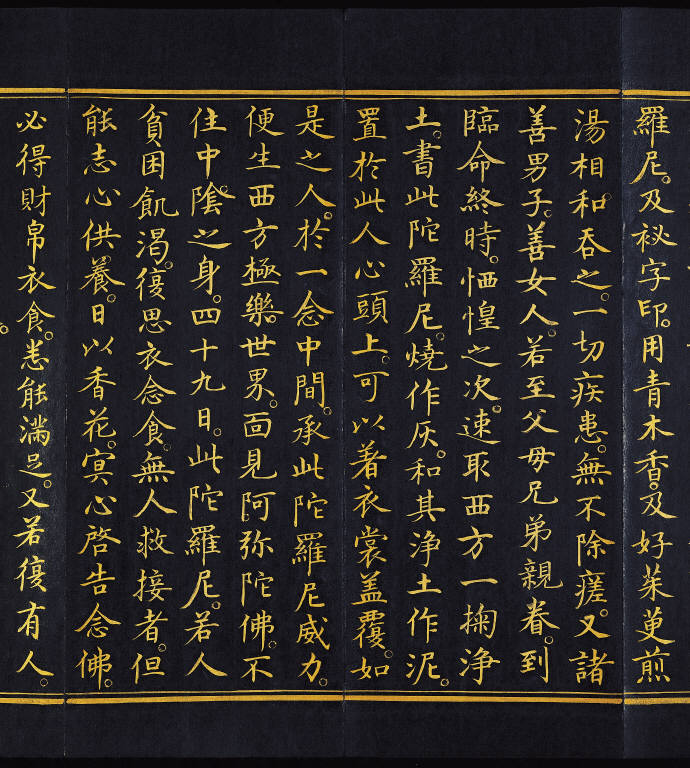 羅尼。及秘字印。用青木香。及好茱萸煎
湯相和吞之。一切疾患。無不除瘥。又諸
善男子。善女人。若至父母兄弟親眷。到
臨命終時。恓惶之次。速取西方一掬淨
土。書此陀羅尼。燒作灰。和其淨土作泥。
置於此人心頭上。可以著衣裳盖覆。如
是之人。於一念中間。承此陀羅尼威力。
便生西方極樂。世界。面見阿弥陀佛。不
住中陰。之身。四十九日。此陀羅尼。若人
貧困飢渴。復思衣念食。無人救接者。但
能志心供養。日以香花。冥心啓告念佛。
必得財帛衣食。悉能滿足。又若復有人。